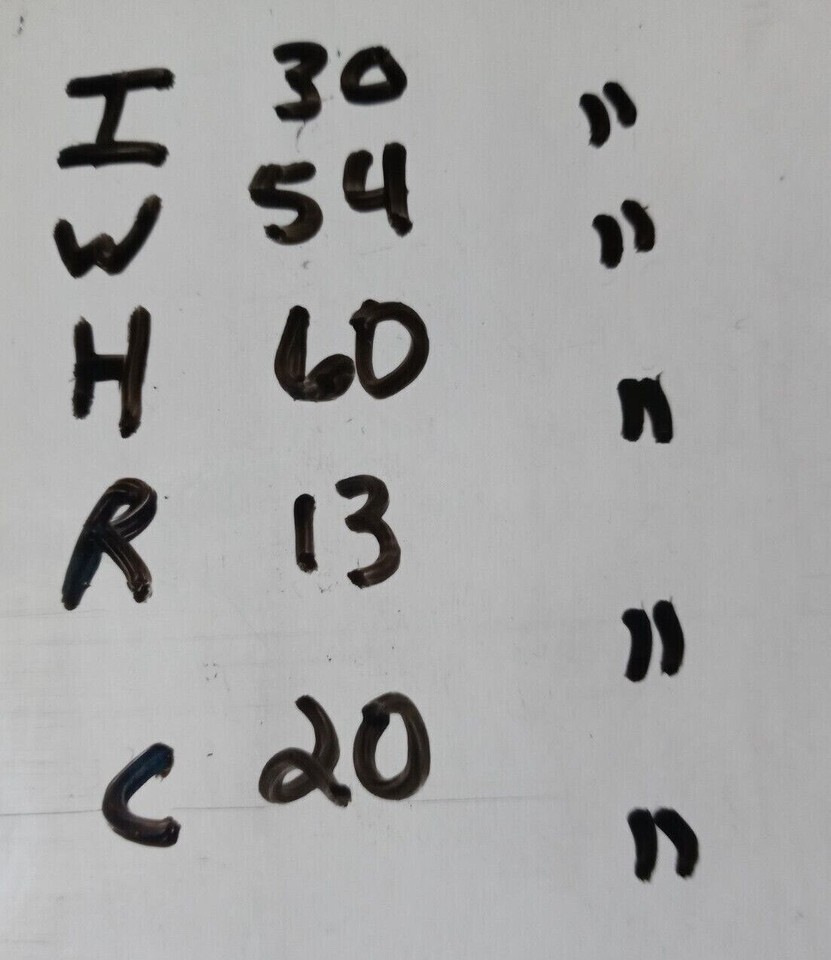 I 30 "
W 54 "
H 60 "
R 13 "
C 20 "